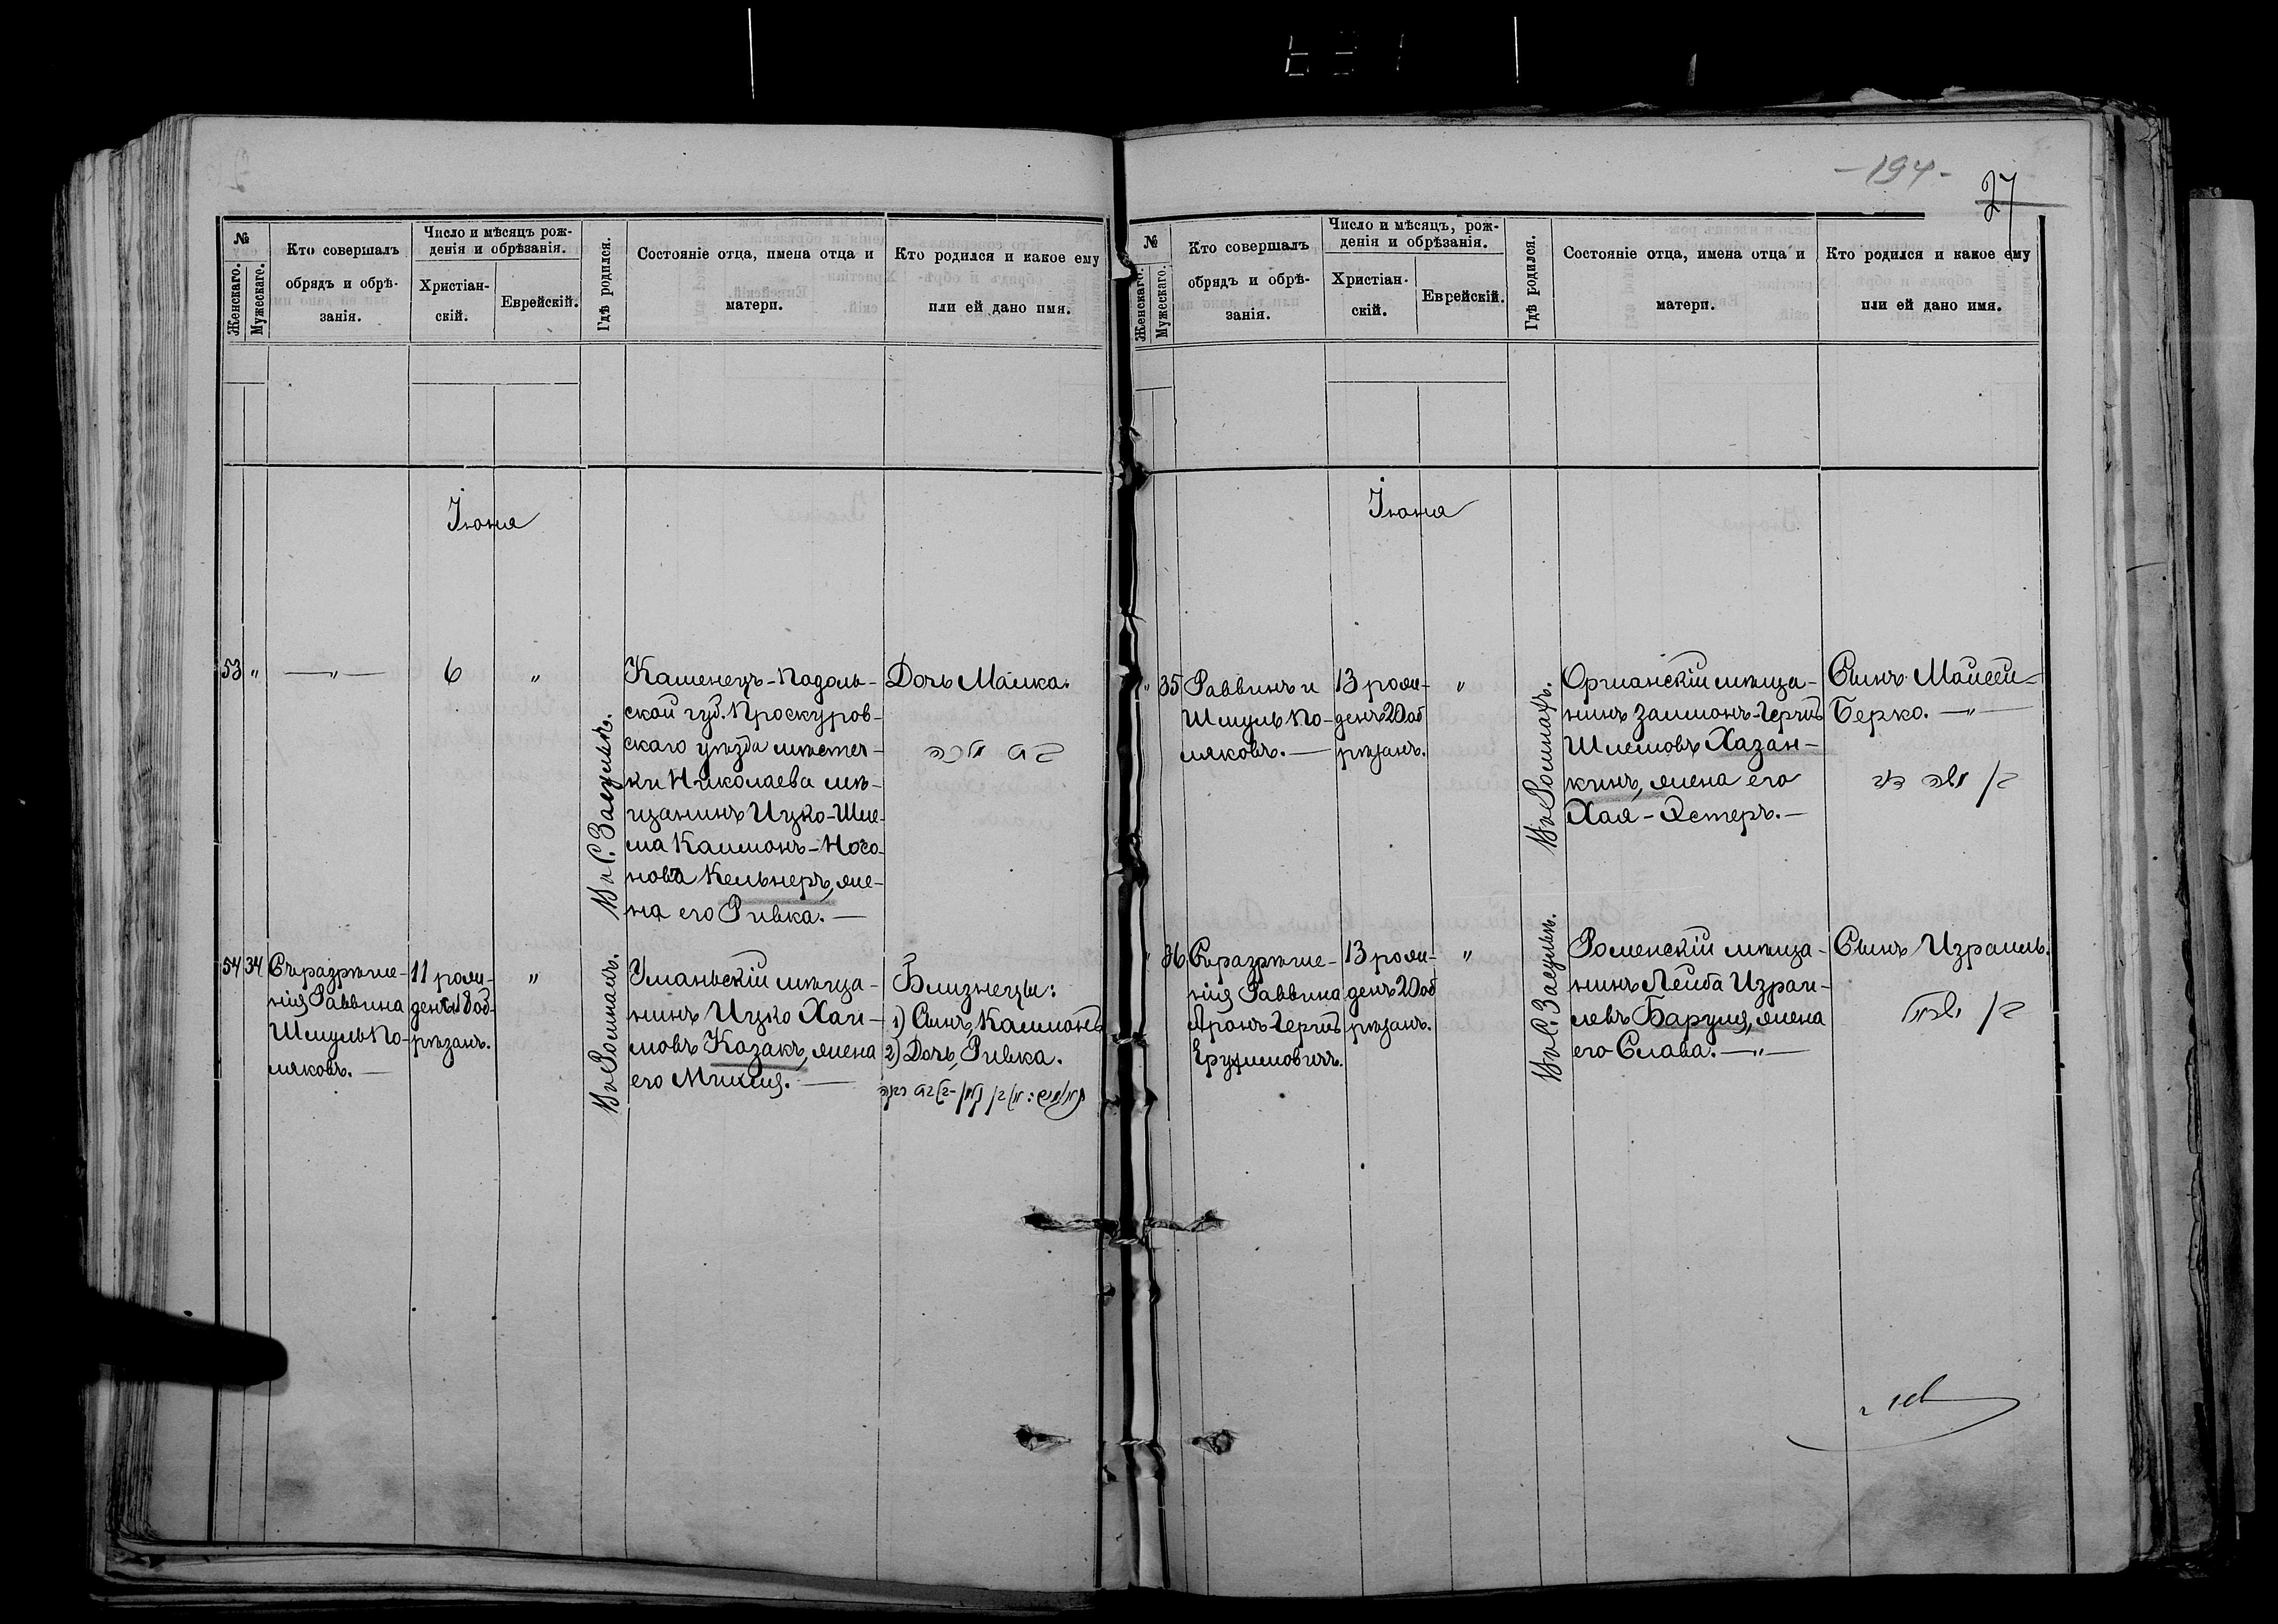 -194-
27
№
Женскаго.
Мужескаго.
Кто совершалъ
обрядъ и обрѣ-
занія.
Число и мѣсяцъ рож-
денія и обрѣзанія.
Христіан-
скій.
Еврейскій.
Гдѣ родился.
Состояніе отца, имена отца и
матери.
Кто родился и какое ему
или ей дано имя.
Іюня
53 „
—„—
6
„
Въ С. Засульи.
Каменецъ-Подоль-
ской губ. Проскуров-
скаго уѣзда мѣстеч-
ки Николаева мѣ-
щанинъ Ицко-Шле-
ма Калмонъ-Ного-
нова Кельнеръ, же-
на его Ривка. —
Дочь Малка.
בת מלכה
54 34
Съ разрѣше-
нія Раввина
Шмуль По-
ляковъ. —
11 рожд-
ден. 18 об-
рѣзанъ.
„
Въ Ромнахъ.
Уманьскій мѣща-
нинъ Ицко Хаи-
мовъ Козакъ, жена
его Михля. —
Близнецы:
1) Сынъ, Калмонъ
2) Дочь, Ривка.
№
Женскаго.
Мужескаго.
Кто совершалъ
обрядъ и обрѣ-
занія.
Число и мѣсяцъ, рож-
денія и обрѣзанія.
Христіан-
скій.
Еврейскій.
Гдѣ родился.
Состояніе отца, имена отца и
матери.
Кто родился и какое ему
или ей дано имя.
Іюня
„ 35
Раввинъ и
Шмуль По-
ляковъ. —
13 рож-
денъ 20 об
рѣзанъ.
„
Въ Ромнахъ.
Оршанскій мѣща-
нинъ Залмонъ-Гершъ
Шлемовъ Хазан-
кинъ, жена его
Хая-Эстеръ. —
Сынъ Мойсей-
Берко. —„—
בן משה בער
„ 36
Съ разрѣше-
нія Раввина
Аронъ-Гершъ
Ерухимовичъ.
13 рож-
денъ 20 об
рѣзанъ.
„
Въ С. Засульи.
Роменскій мѣща-
нинъ Лейба Израи-
левъ Баруля, жена
его Слава. —„—
Сынъ Израиль.
בן ישראל